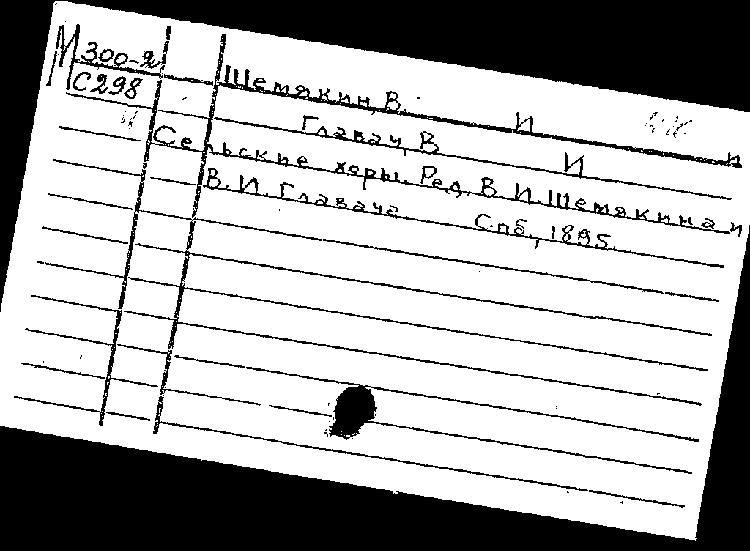 М 300-2
С298
Шемякин, В. И
Главач, В. И
Сельские хоры. Ред. В. И. Шемякина и
В. И. Главача. Спб., 1895.